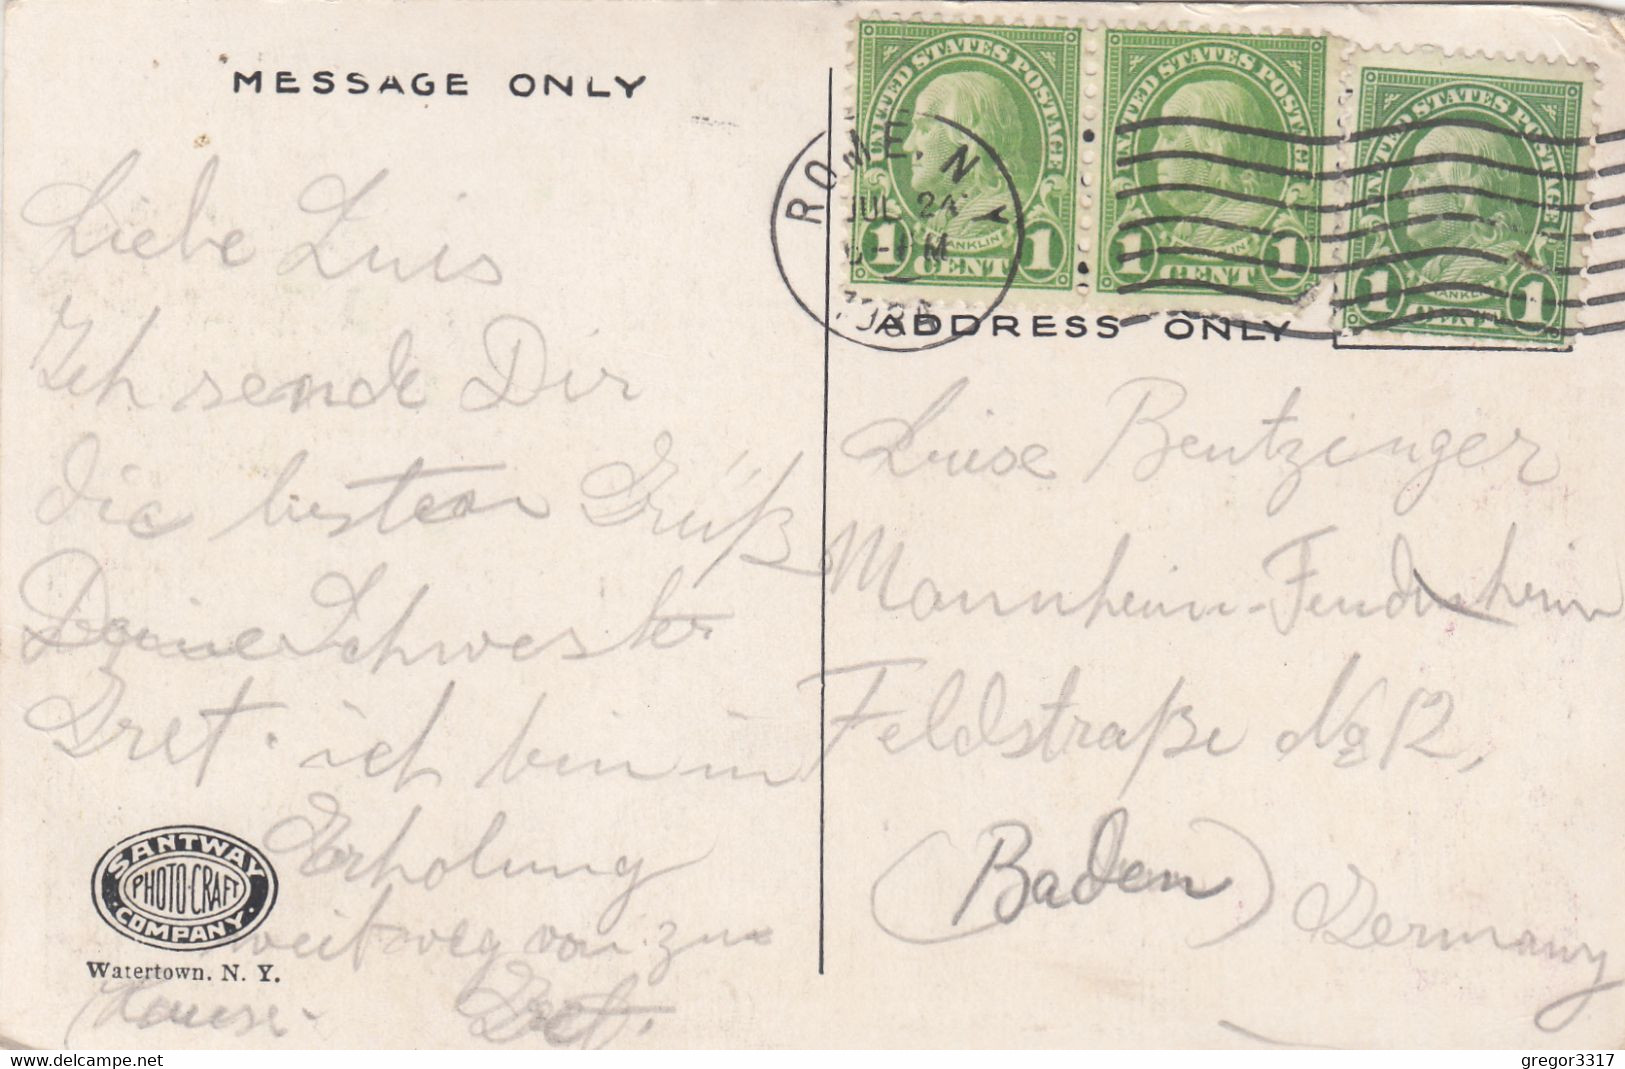 MESSAGE ONLY
Liebe Luis
Ich sende Dir
die besten Grüß
Deine Schwester
Gret. ich bin in
Erholung
weit weg von zu
Hause.
Gret.
SANTWAY
PHOTO-CRAFT
COMPANY
Watertown, N. Y.
UNITED STATES POSTAGE
FRANKLIN
1 CENT 1
UNITED STATES POSTAGE
FRANKLIN
1 CENT 1
UNITED STATES POSTAGE
FRANKLIN
1 CENT 1
ROME, N Y
JUL 24
ADDRESS ONLY
Luise Bentzinger
Mannheim-Feudenheim
Feldstraße No 12,
(Baden)
Germany
www.delcampe.net
gregor3317